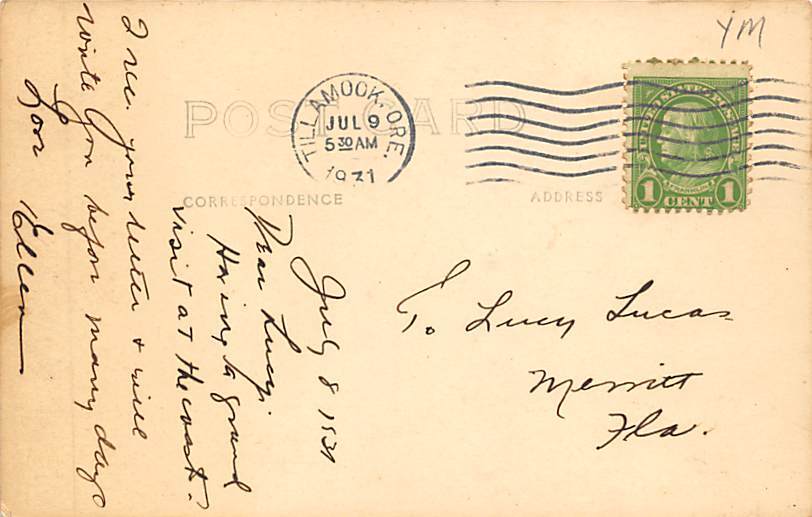 YM
POST CARD
TILLAMOOK, ORE.
JUL 9
5 30 AM
1931
CORRESPONDENCE
ADDRESS
FRANKLIN
1 CENT 1
July 8 1931
Dear Lucy.
Having a grand
visit at the coast.
I rec. your letter & will
write you before many days
Love Ellen
To Lucy Lucas
Merritt
Fla.